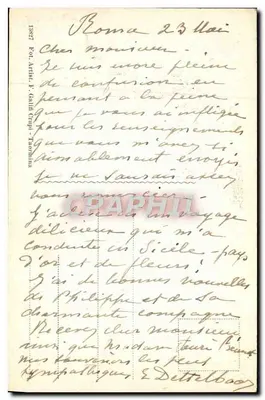 Roma 23 Mai
Cher monsieur.
Je suis encore pleine
de confusion en
pensant à la peine
que je vous ai infligée
pour les renseignements
que vous m'avez si
aimablement envoyés
je ne saurais assez
vous remercier
J'achève un voyage
délicieux qui m'a
conduite en Sicile, pays
d'or et de fleurs.
J'ai de bonnes nouvelles
de Philippe et de sa
charmante compagne
Recevez cher monsieur
ainsi que Madame
mes souvenirs les plus
sympathiques. E Dettelbach
PHOTO
Fot. Artist. F. Galifi Crupi - Taormina